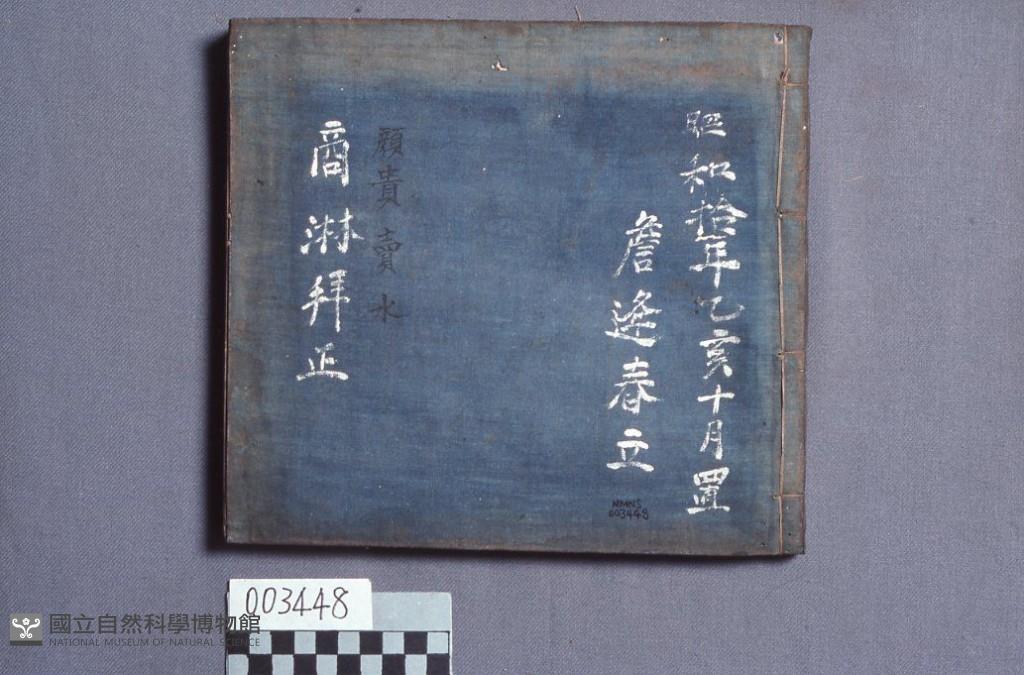 昭和拾年乙亥十月置
詹逢春立
顔貴賣水
商淋拜正
NMNS
003448
003448
國立自然科學博物館
NATIONAL MUSEUM OF NATURAL SCIENCE